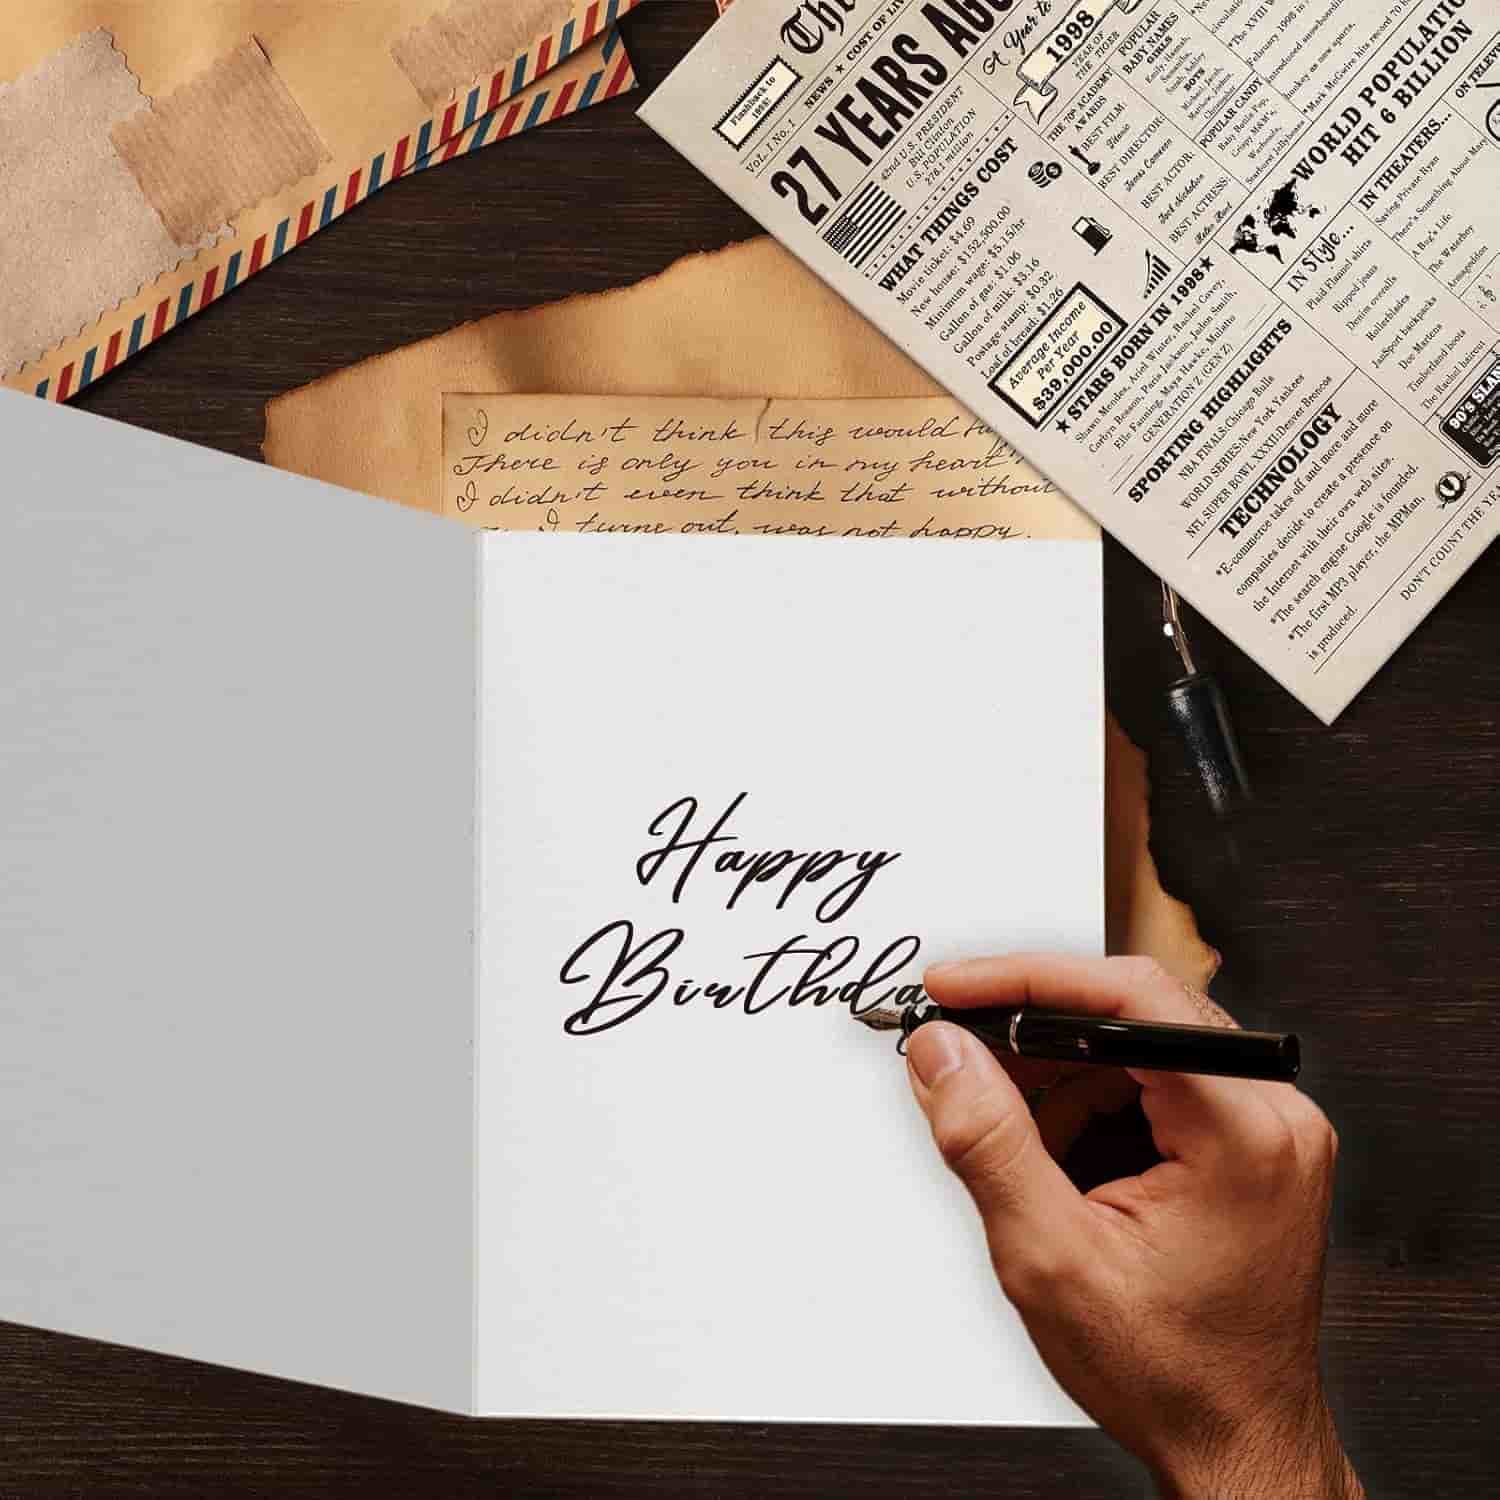 The
Flashback to
1998!
VOL. 1 No. 1
NEWS ★ COST OF
27 YEARS AGO
42nd U.S. PRESIDENT
Bill Clinton
U.S. POPULATION
276.1 million
WHAT THINGS COST
Movie ticket: $4.69
New house: $152,500.00
Minimum wage: $5.15/hr
Gallon of gas: $1.06
Gallon of milk: $3.16
Postage stamp: $0.32
Loaf of bread: $1.26
Average Income
Per Year
$39,000.00
A Year to
1998
YEAR OF
THE TIGER
THE 70th ACADEMY
AWARDS
BEST FILM:
Titanic
BEST DIRECTOR:
James Cameron
BEST ACTOR:
Jack Nicholson
BEST ACTRESS:
Helen Hunt
POPULAR
BABY NAMES
GIRLS
Emily, Hannah,
Samantha,
Sarah, Ashley
BOYS
Michael, Jacob,
Matthew, Joshua,
Christopher
POPULAR CANDY
Baby Bottle Pop,
Crispy M&M's,
Warheads,
Starburst Jellybeans
*The XVIII W
February 1998 in
introduced snowboarding
*Mark McGwire hits record 70
WORLD POPULATION
HIT 6 BILLION
★ STARS BORN IN 1998 ★
Shawn Mendes, Ariel Winter, Rachel Covey,
Corbyn Besson, Paris Jackson, Jaden Smith,
Elle Fanning, Maya Hawke, Mulatto
GENERATION Z (GEN Z)
SPORTING HIGHLIGHTS
NBA FINALS/Chicago Bulls
WORLD SERIES/New York Yankees
NFL SUPER BOWL XXXII/Denver Broncos
TECHNOLOGY
*E-commerce takes off and more and more
companies decide to create a presence on
the Internet with their own web sites.
*The search engine Google is founded.
*The first MP3 player, the MPMan,
is produced.
IN Style...
Plaid Flannel shirts
Ripped jeans
Denim overalls
Rollerblades
JanSport backpacks
Doc Martens
Timberland boots
The Rachel haircut
IN THEATERS...
Saving Private Ryan
There's Something About Mary
A Bug's Life
The Waterboy
Armageddon
ON TELEV
90's SLANG
DON'T COUNT THE YE
I didn't think this would
There is only you in my heart
I didn't even think that without
I turne out, was not happy.
Happy
Birthda